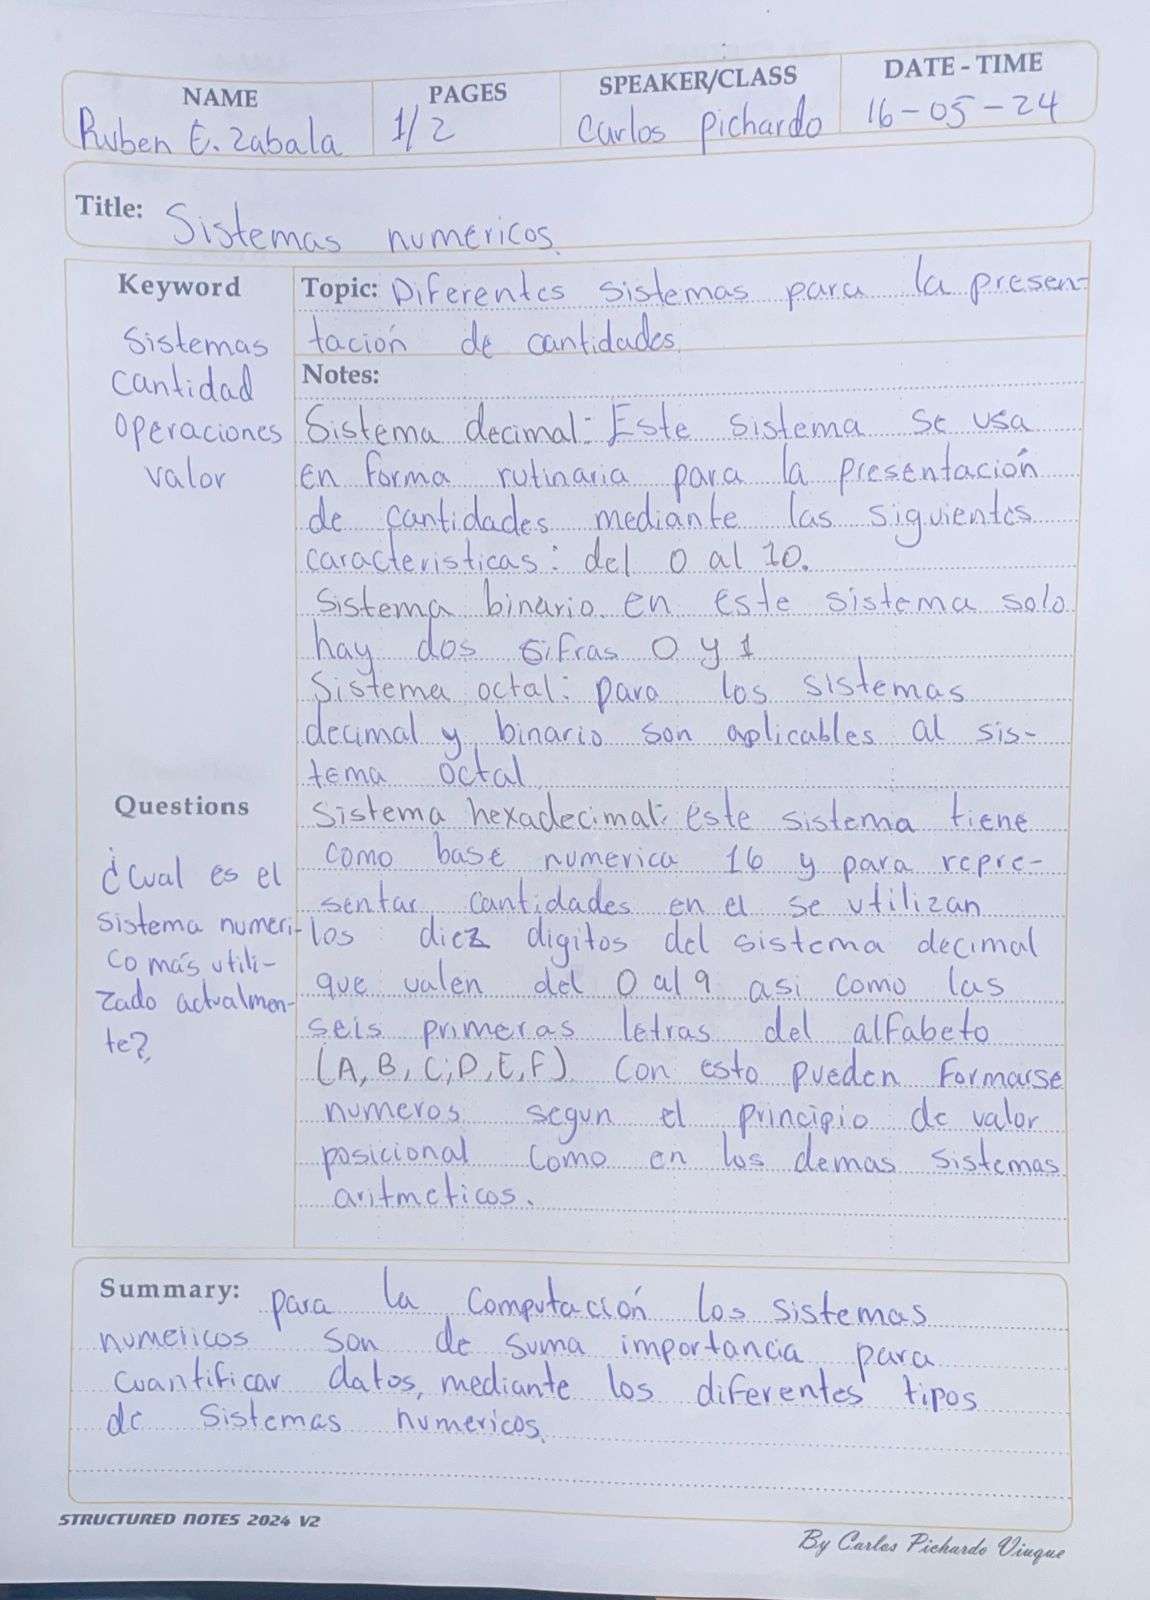 NAME
Ruben E. Zabala
PAGES
1/2
SPEAKER/CLASS
Carlos Pichardo
DATE - TIME
16-05-24
Title: Sistemas numericos.
Keyword
Sistemas
Cantidad
Operaciones
valor
Questions
¿Cual es el
sistema numeri-
co más utili-
zado actualmen-
te?
Topic: Diferentes sistemas para la presen-
tación de cantidades.
Notes:
Sistema decimal: Este sistema se usa
en forma rutinaria para la presentación
de cantidades mediante las siguientes
caracteristicas: del 0 al 10.
Sistema binario. en este sistema solo
hay dos sifras 0 y 1
Sistema octal: para los sistemas
decimal y binario son aplicables al sis-
tema octal
Sistema hexadecimal: este sistema tiene
como base numerica 16 y para repre-
sentar cantidades en el se utilizan
los diez digitos del sistema decimal
que valen del 0 al 9 asi como las
seis primeras letras del alfabeto
(A, B, C, D, E, F). Con esto pueden formarse
numeros segun el principio de valor
posicional como en los demas sistemas
aritmeticos.
Summary: para la Computación los sistemas
numericos son de suma importancia para
cuantificar datos, mediante los diferentes tipos
de sistemas numericos.
STRUCTURED NOTES 2024 V2
By Carlos Pichardo Viuque